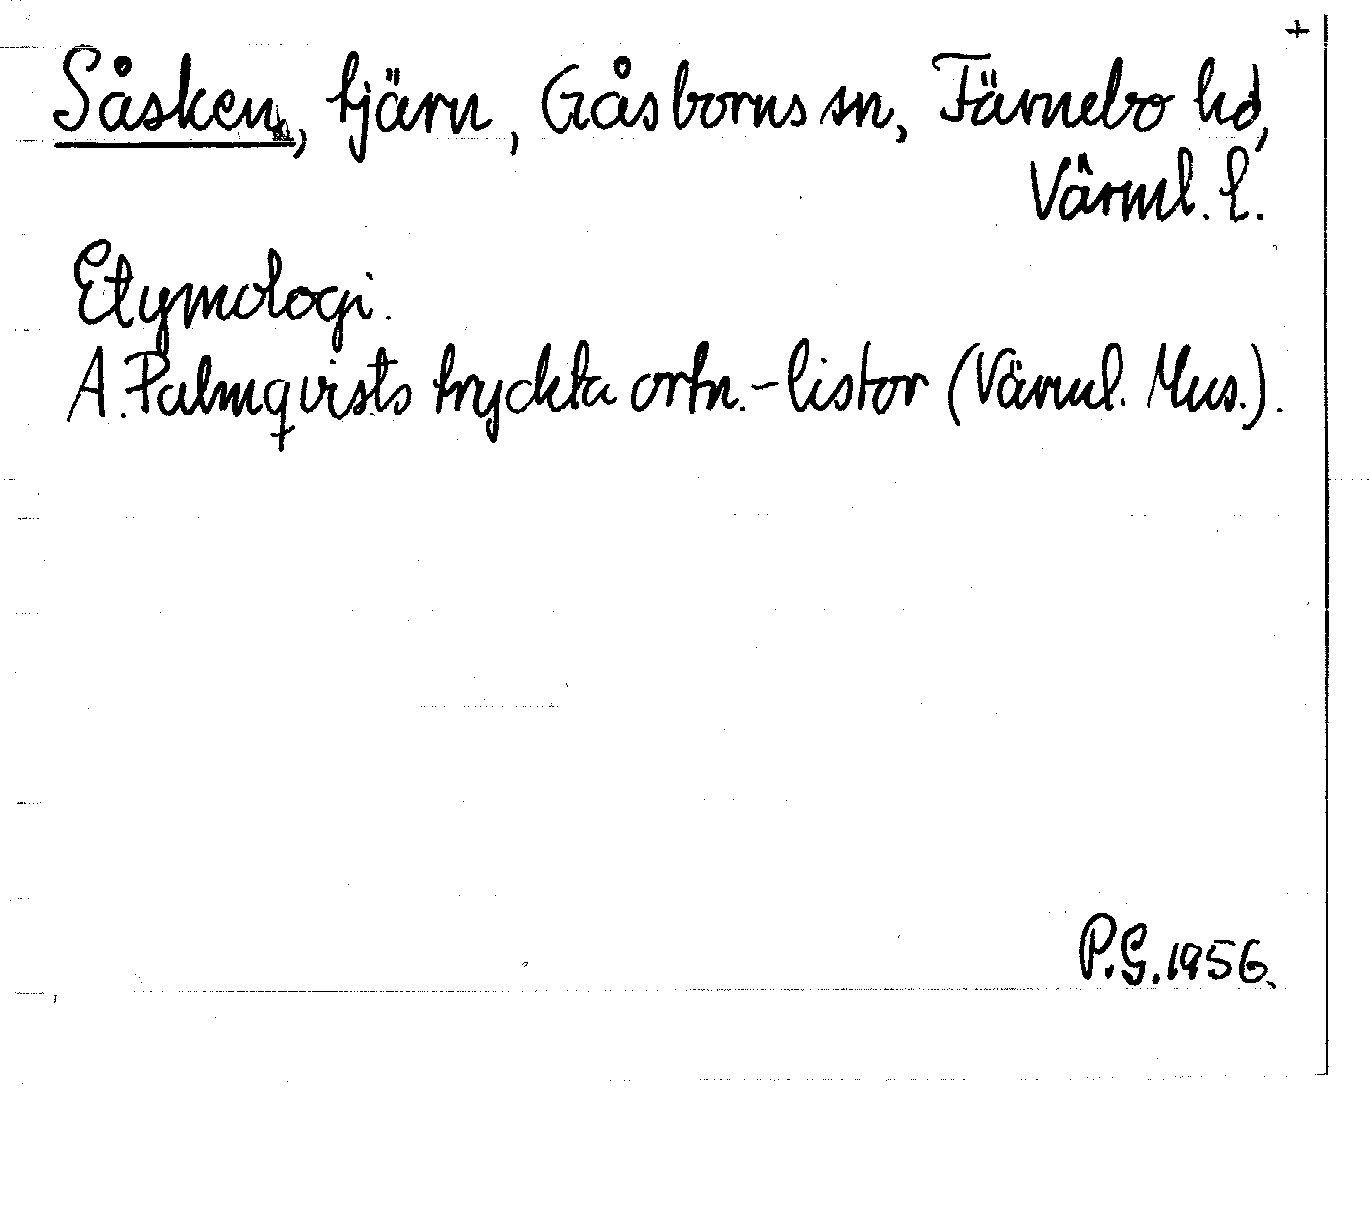 +
Såsken, tjärn, Gåsborns sn, Färnebo hd,
Värml. l.
Etymologi.
A. Palmqvists tryckta ortn.-listor (Värml. Mus.).
P.G. 1956.